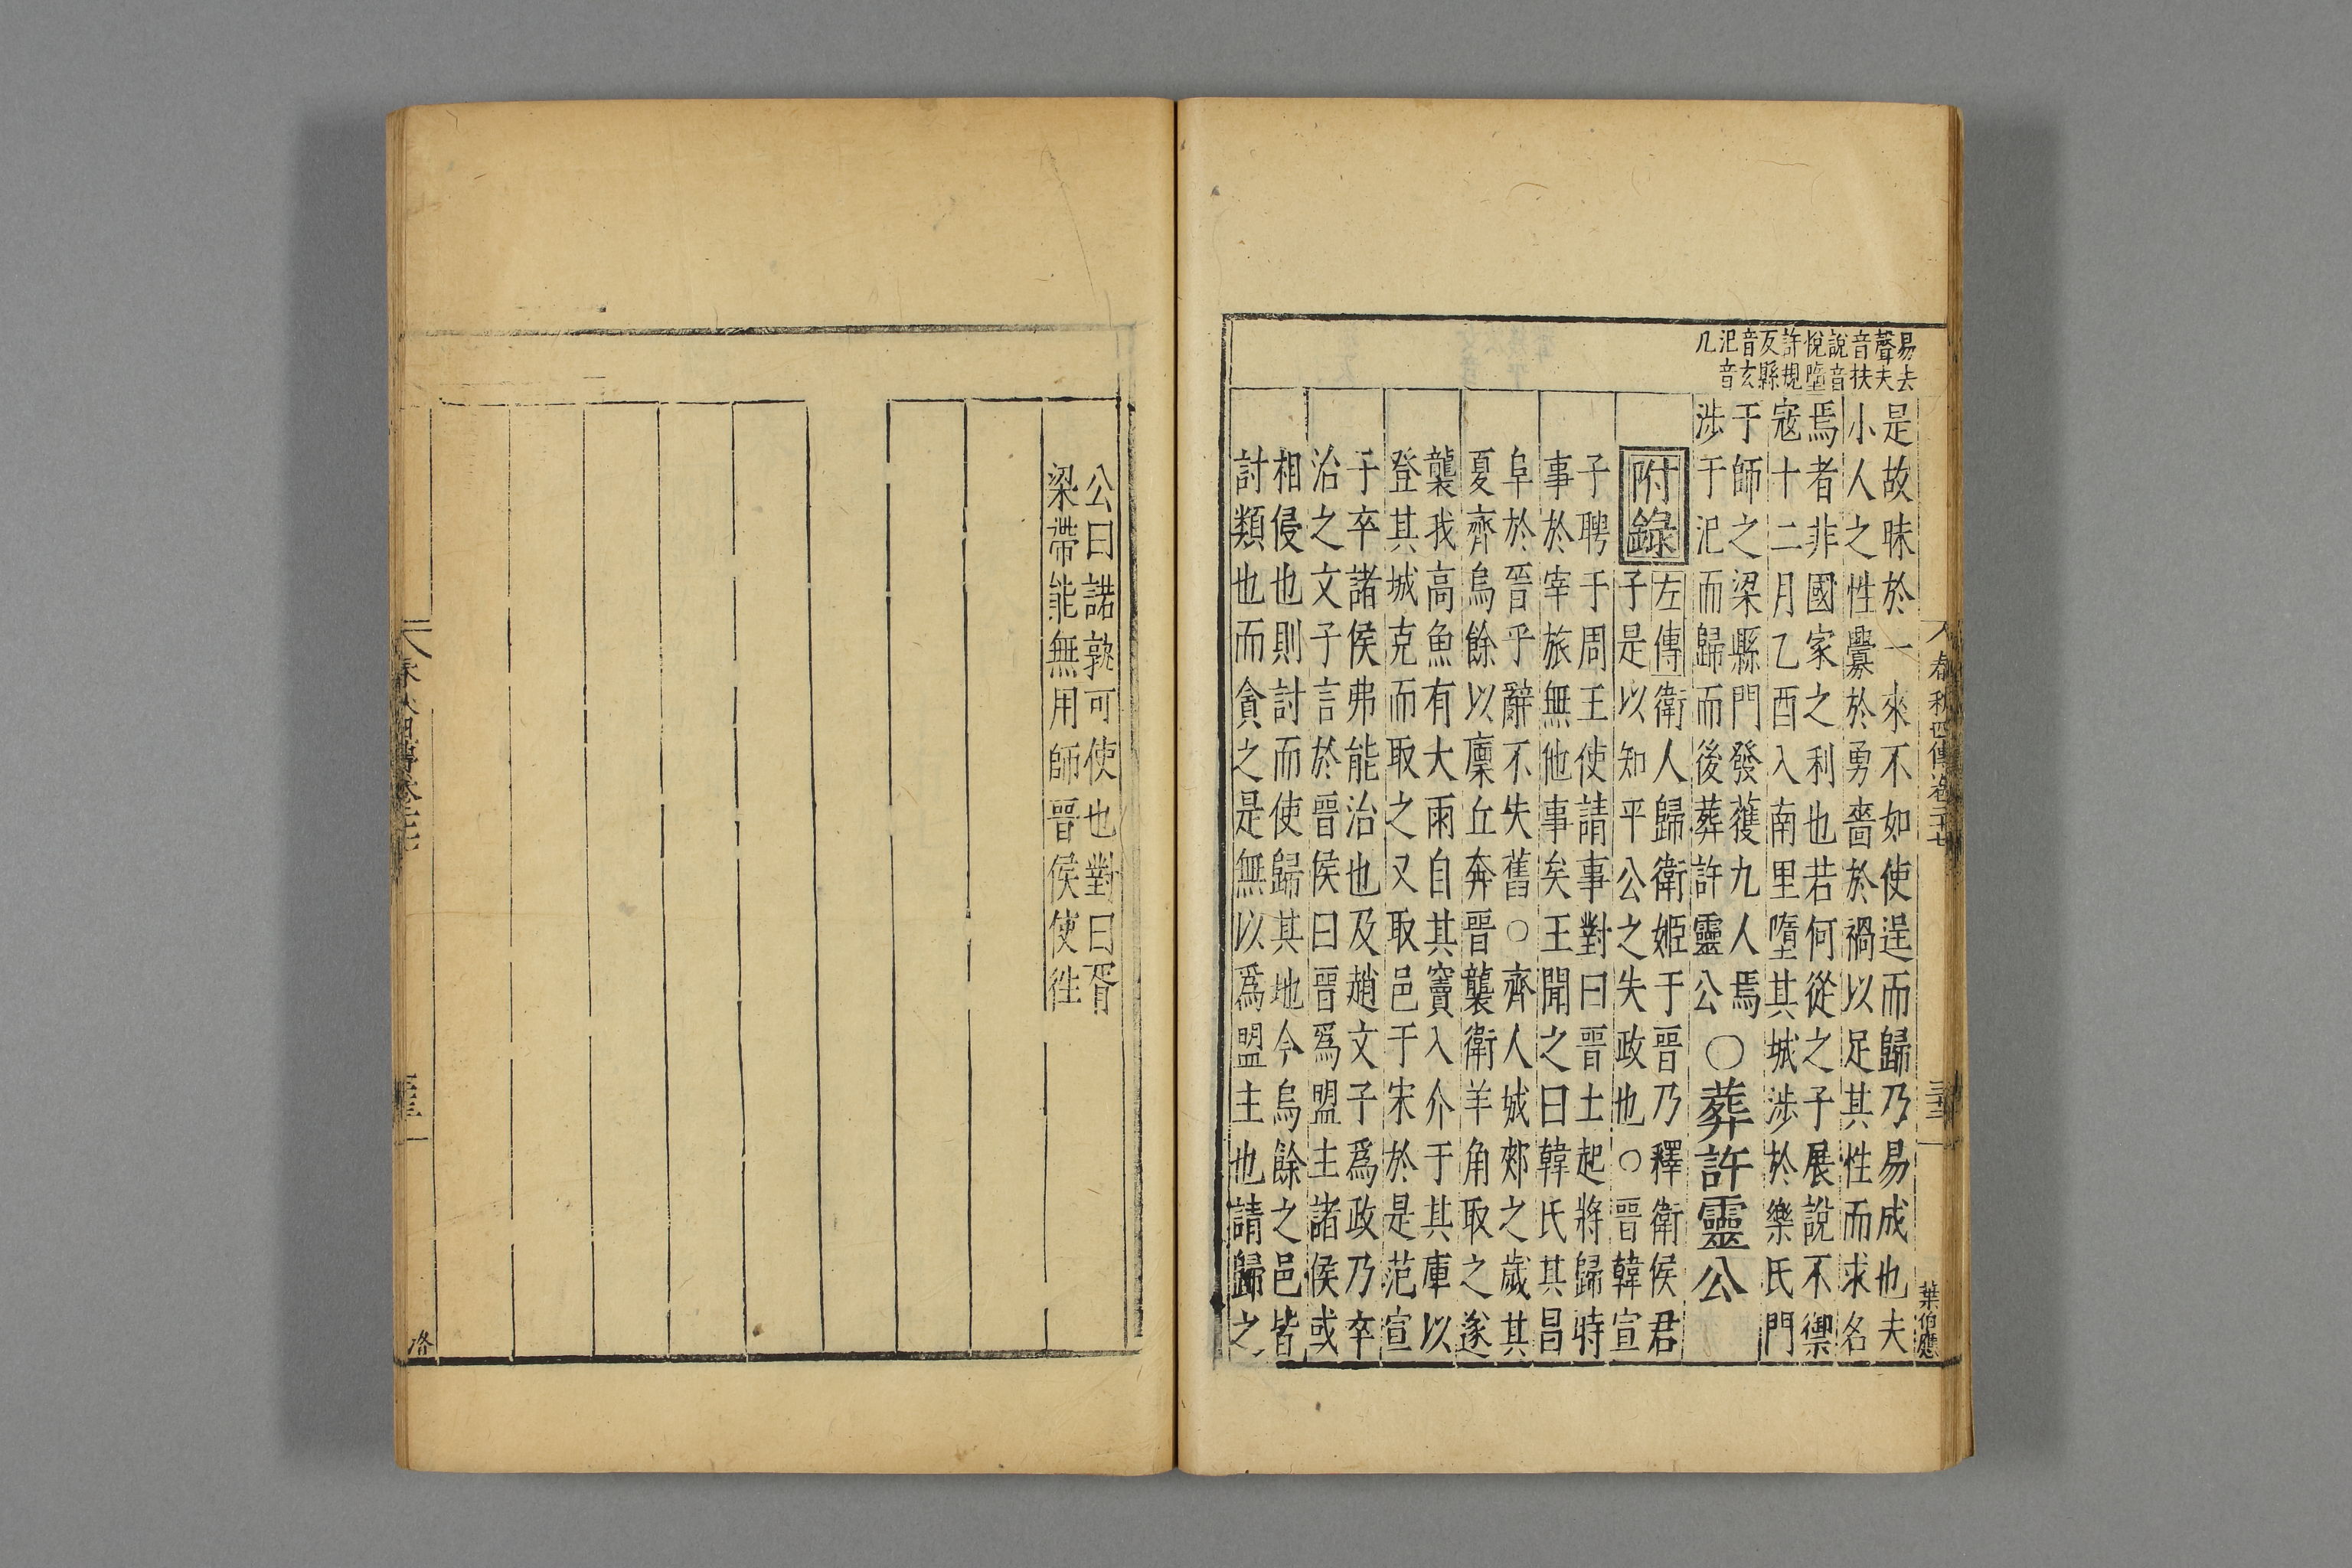 易去
聲夫
音扶
說音
悅墮
許規
反縣
音玄
汜音
凡
是故昧於一來不如使逞而歸乃易成也夫
小人之性釁於勇嗇於禍以足其性而求名
焉者非國家之利也若何從之子展說不禦
寇十二月乙酉入南里墮其城涉於樂氏門
于師之梁縣門發獲九人焉
涉于汜而歸而後葬許靈公
○葬許靈公
附錄
左傳衛人歸衛姬于晉乃釋衛侯君
子是以知平公之失政也○晉韓宣
子聘于周王使請事對曰晉士起將歸時
事於宰旅無他事矣王聞之曰韓氏其昌
阜於晉乎辭不失舊○齊人城郟之歲其
夏齊烏餘以廩丘奔晉襲衛羊角取之遂
襲我高魚有大雨自其竇入介于其庫以
登其城克而取之又取邑于宋於是范宣
子卒諸侯弗能治也及趙文子為政乃卒
治之文子言於晉侯曰晉爲盟主諸侯或
相侵也則討而使歸其地今烏餘之邑皆
討類也而貪之是無以爲盟主也請歸之
春秋四傳卷二十七
葉伯應
公曰諾孰可使也對曰胥
梁帶能無用師晉侯使徃